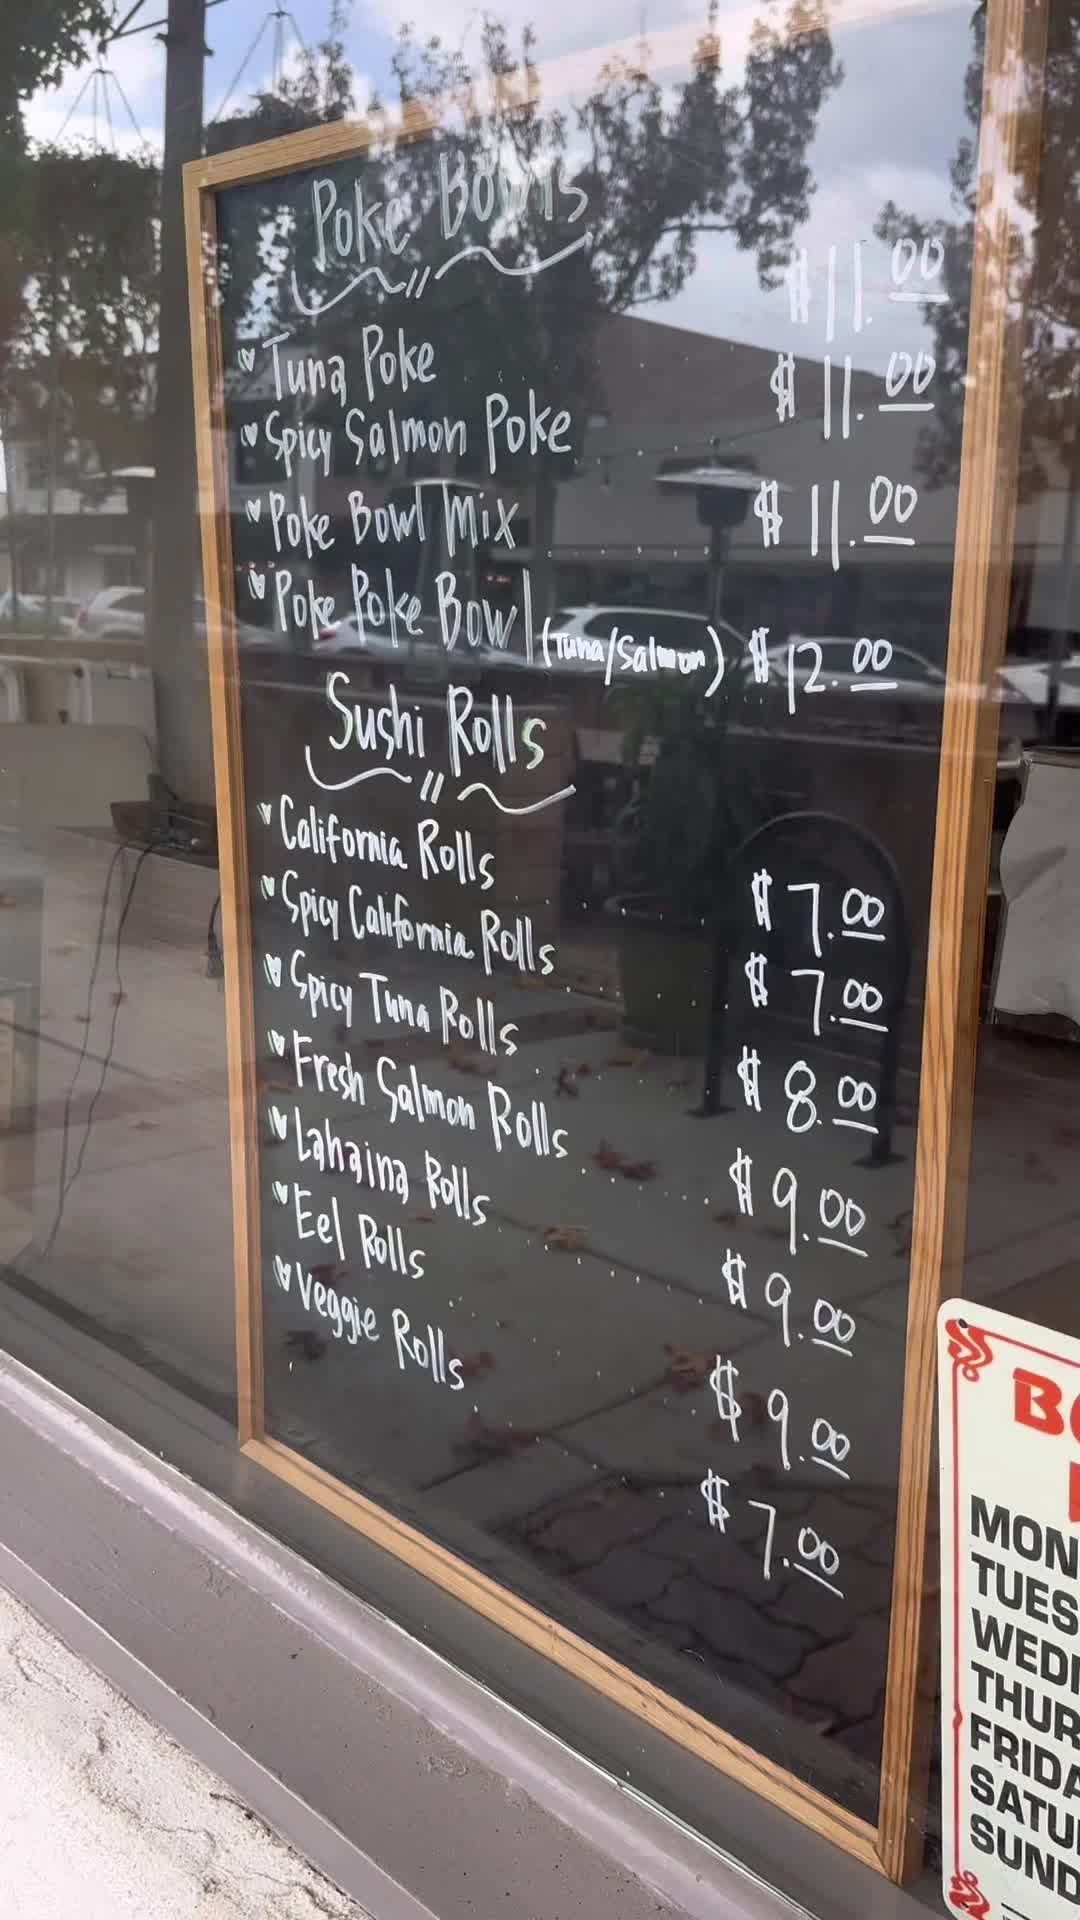 Poke Bowls
Tuna Poke $11.00
Spicy Salmon Poke $11.00
Poke Bowl Mix $11.00
Poke Poke Bowl (Tuna/Salmon) $12.00
Sushi Rolls
California Rolls $7.00
Spicy California Rolls $7.00
Spicy Tuna Rolls $8.00
Fresh Salmon Rolls $9.00
Lahaina Rolls $9.00
Eel Rolls $9.00
Veggie Rolls $7.00
MON
TUES
WED
THUR
FRIDA
SATU
SUND